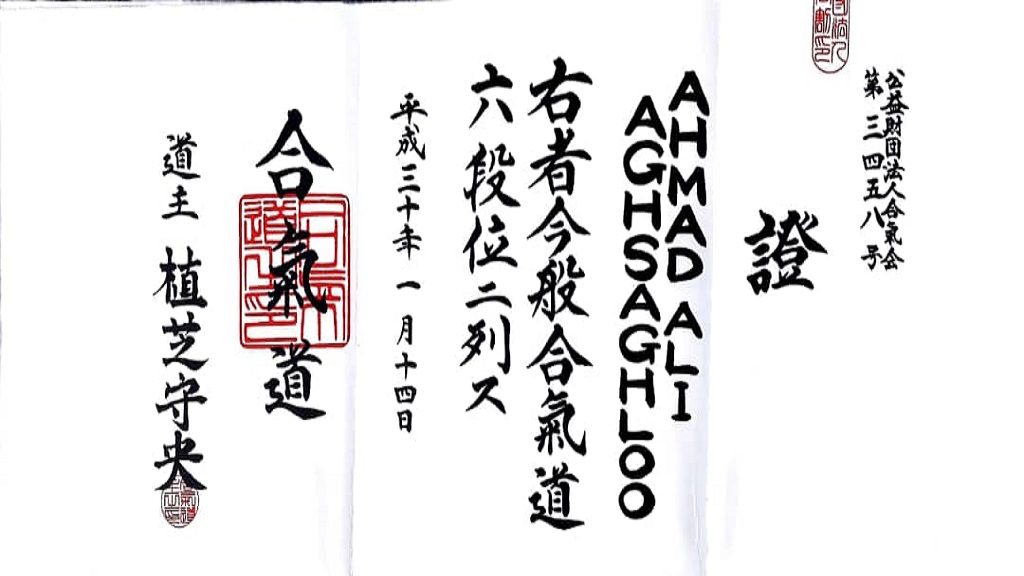 公益財団法人合氣会
第三四五八号
證
AHMAD ALI
AGHSAGHLOO
右者今般合氣道
六段位ニ列ス
平成三十年一月十四日
合氣道
道主 植芝守央